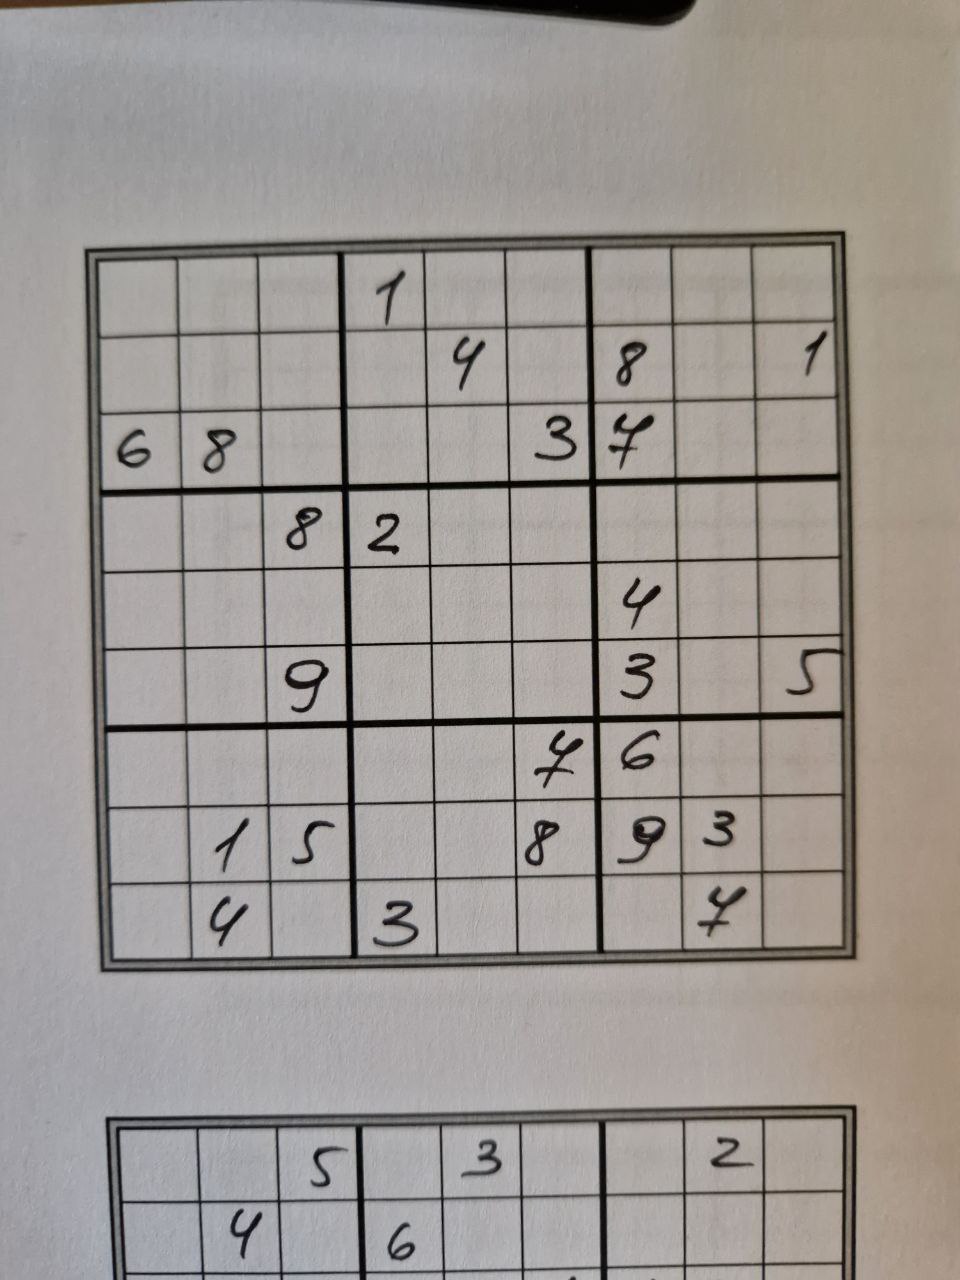 1
4 8 1
6 8 3 7
8 2
4
9 3 5
7 6
1 5 8 9 3
4 3 7
5 3 2
4 6